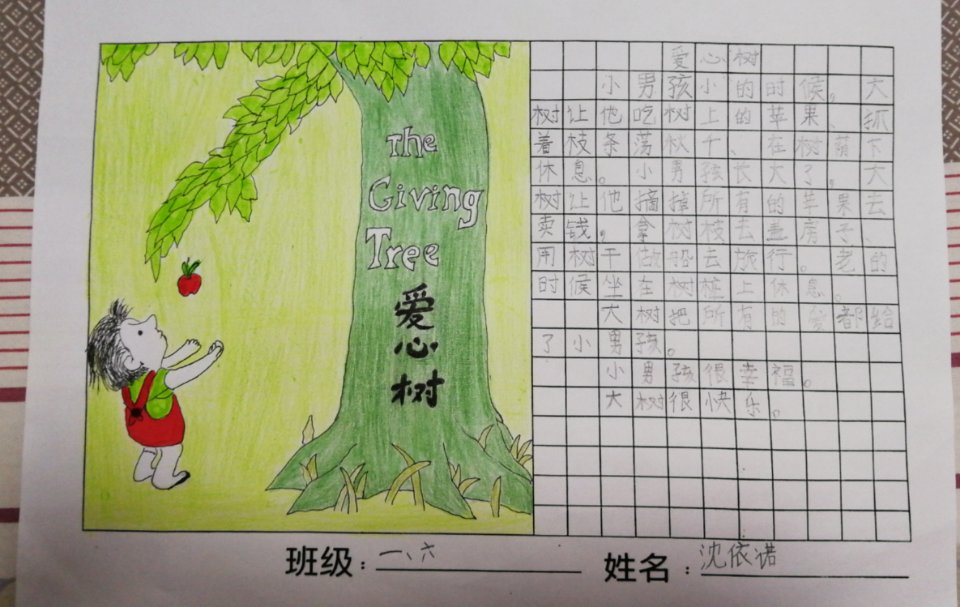 The
Giving
Tree
爱
心
树
爱心树
小男孩小的时候。大
树让他吃树上的苹果、抓
着枝条荡秋千、在树荫下
休息。小男孩长大了。大
树让他摘掉所有的苹果去
卖钱。拿树枝去盖房子、
用树干做船去旅行。老的
时候坐在树桩上休息。
大树把所有的爱都给
了小男孩。
小男孩很幸福。
大树很快乐。
班级：一、六
姓名：沈依诺